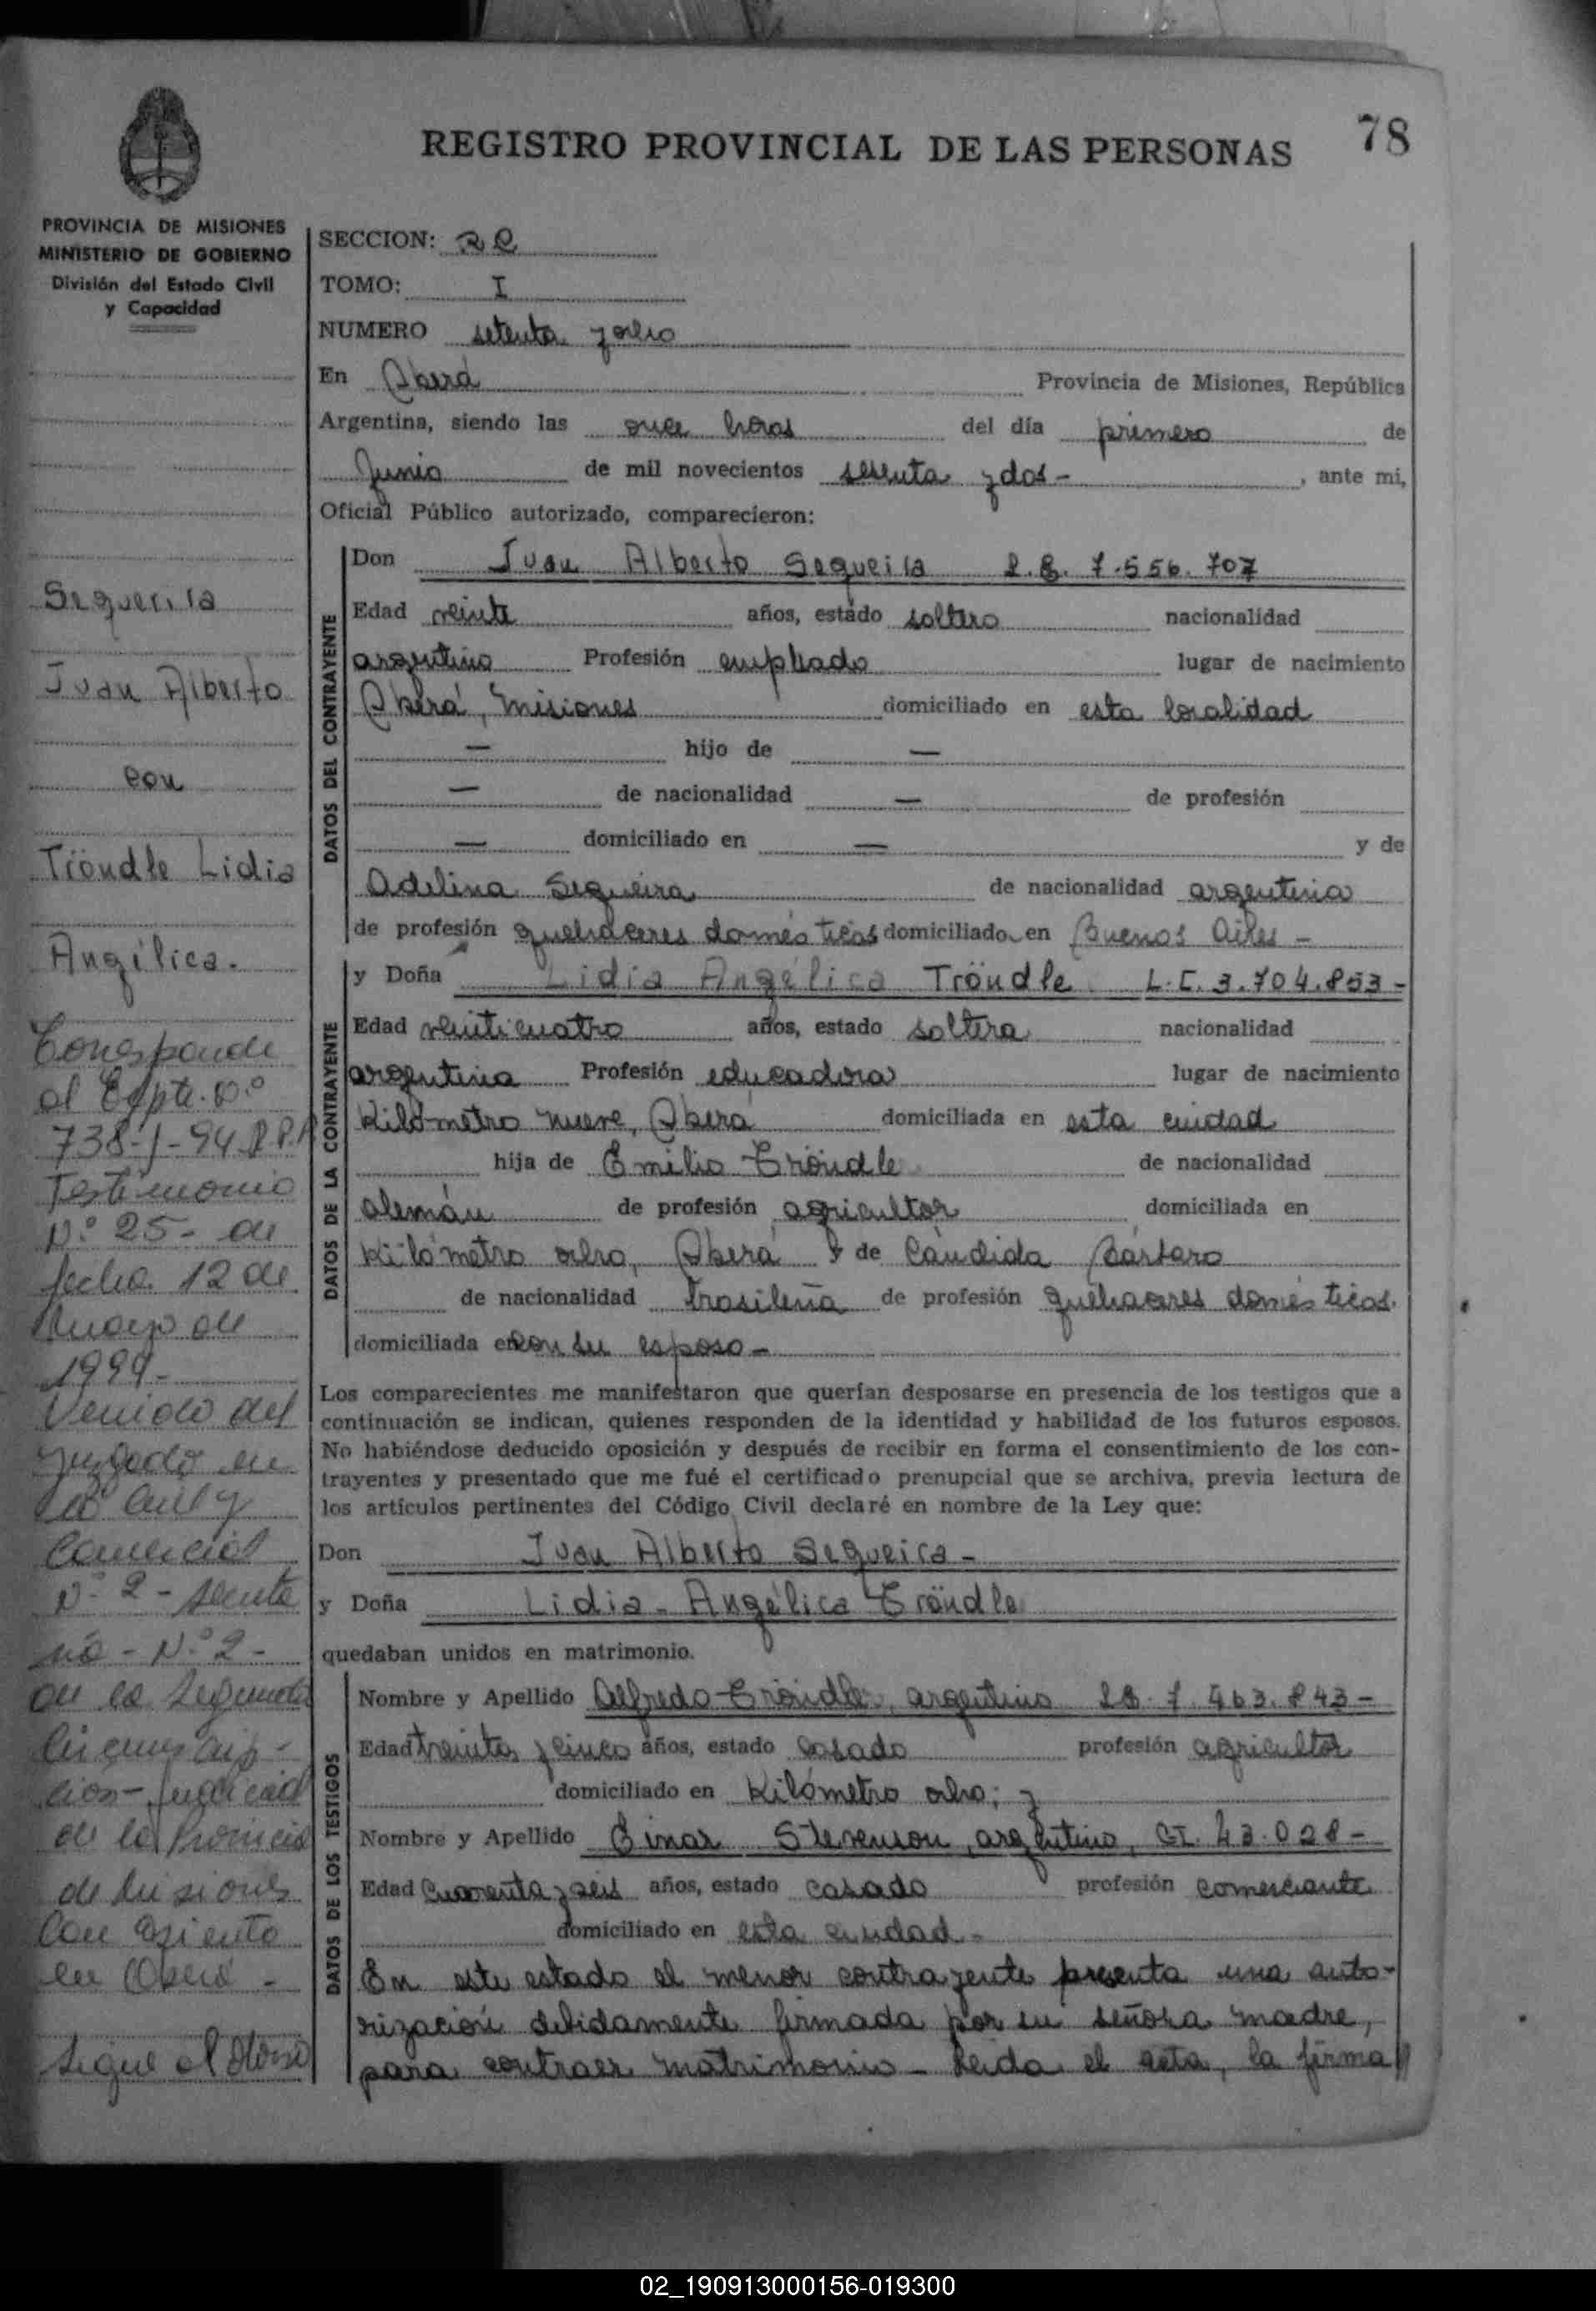 78
REGISTRO PROVINCIAL DE LAS PERSONAS
PROVINCIA DE MISIONES
MINISTERIO DE GOBIERNO
División del Estado Civil
y Capacidad
Sequeira
Juan Alberto
con
Tröndle Lidia
Angélica.
Corresponde
al Expte. Nº
738-J-94 R.P.P.
Testimonio
Nº 25- de
fecha 12 de
Mayo de
1994-
Venido del
Juzgado en
lo Civil y
Comercial
Nº 2 - Secreta
ría - Nº 2 -
de la Segunda
Circunscrip-
ción - Judicial
de la Provincia
de Misiones
Con Asiento
en Oberá -
Sigue al dorso
SECCION:
TOMO: I
NUMERO setenta y ocho
En Oberá Provincia de Misiones, República
Argentina, siendo las once horas del día primero de
Junio de mil novecientos sesenta y dos - , ante mi,
Oficial Público autorizado, comparecieron:
DATOS DEL CONTRAYENTE
Don Juan Alberto Sequeira L.E. 7.556.707
Edad veinte años, estado soltero nacionalidad
argentino Profesión empleado lugar de nacimiento
Oberá, Misiones domiciliado en esta localidad
— hijo de —
— de nacionalidad — de profesión
— domiciliado en — y de
Adelina Sequeira de nacionalidad argentina
de profesión quehaceres domésticos domiciliado en Buenos Aires -
DATOS DE LA CONTRAYENTE
y Doña Lidia Angélica Tröndle L.C. 3.704.853 -
Edad veinticuatro años, estado soltera nacionalidad
argentina Profesión educadora lugar de nacimiento
Kilómetro nueve, Oberá domiciliada en esta ciudad
hija de Emilio Tröndle de nacionalidad
alemán de profesión agricultor domiciliada en
Kilómetro ocho, Oberá y de Cándida Bárbaro
de nacionalidad brasileña de profesión quehaceres domésticos.
domiciliada en con su esposo -
Los comparecientes me manifestaron que querían desposarse en presencia de los testigos que a
continuación se indican, quienes responden de la identidad y habilidad de los futuros esposos.
No habiéndose deducido oposición y después de recibir en forma el consentimiento de los con-
trayentes y presentado que me fué el certificado prenupcial que se archiva, previa lectura de
los artículos pertinentes del Código Civil declaré en nombre de la Ley que:
Don Juan Alberto Sequeira -
y Doña Lidia - Angélica Tröndle
quedaban unidos en matrimonio.
DATOS DE LOS TESTIGOS
Nombre y Apellido Alfredo Tröndle, argentino LE. 7.463.843 -
Edad treinta y cinco años, estado casado profesión agricultor
domiciliado en Kilómetro ocho; y
Nombre y Apellido Einar Stevenson, argentino, CI. 43.028 -
Edad Cuarenta y seis años, estado casado profesión comerciante
domiciliado en esta ciudad -
En este estado el menor contrayente presenta una auto-
rización debidamente firmada por su señora madre,
para contraer matrimonio - Leida el acta, la firma
02_190913000156-019300